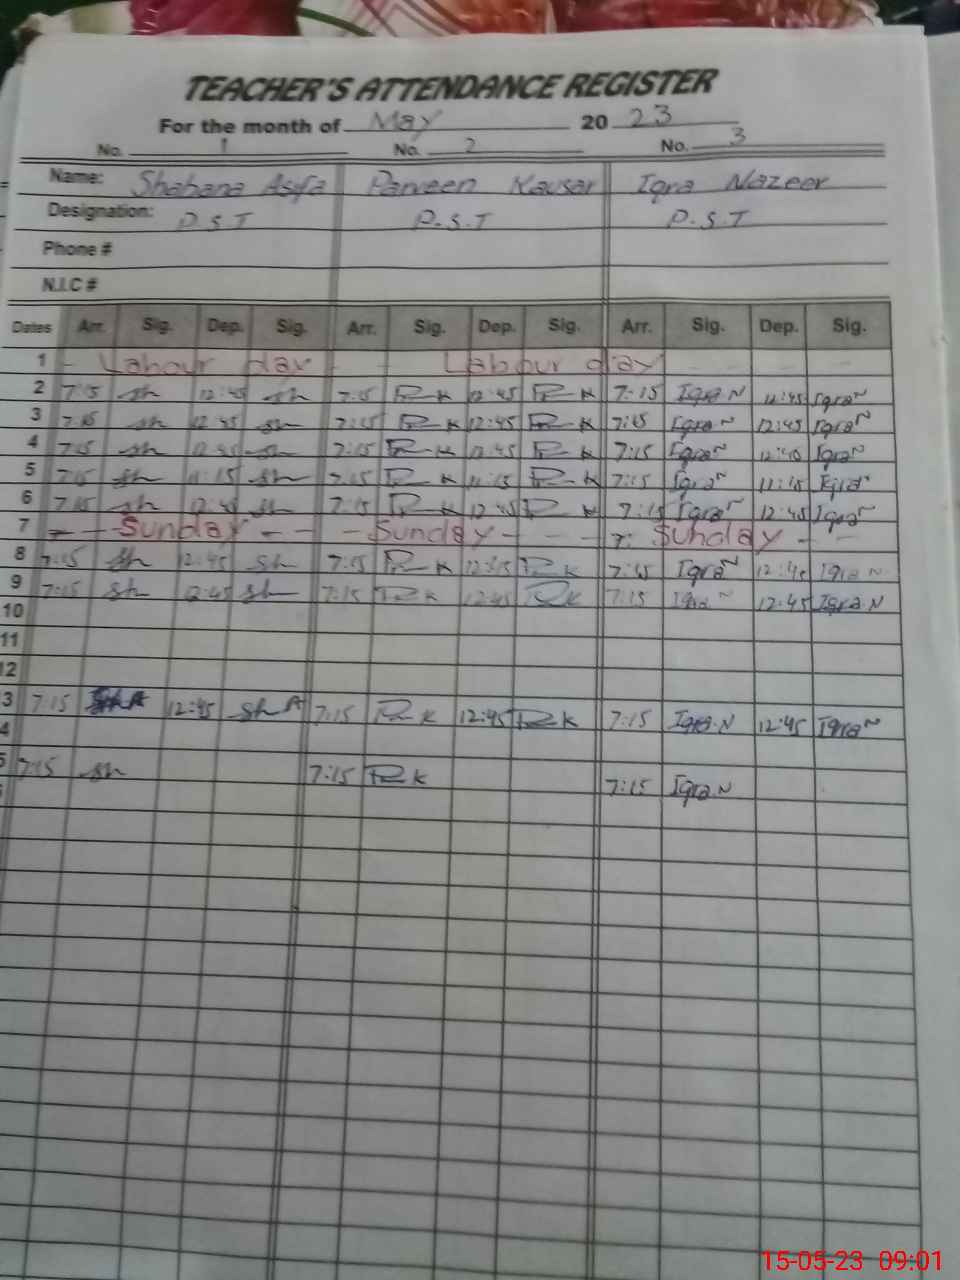 TEACHER'S ATTENDANCE REGISTER
For the month of May 20 23
No. 1 No. 2 No. 3
Name: Shabana Asifa Parveen Kausar Iqra Nazeer
Designation: P.S.T P.S.T P.S.T
Phone #
N.I.C #
Dates Arr. Sig. Dep. Sig. Arr. Sig. Dep. Sig. Arr. Sig. Dep. Sig.
1 - Labour day - - Labour day
2 7:15 sh 12:45 sh 7:15 P K 12:45 P K 7:15 Iqra N 12:45 Iqra N
3 7:15 sh 12:45 sh 7:15 P K 12:45 P K 7:15 Iqra N 12:45 Iqra N
4 7:15 sh 12:45 sh 7:15 P K 12:45 P K 7:15 Iqra N 12:45 Iqra N
5 7:15 sh 11:15 sh 7:15 P K 11:15 P K 7:15 Iqra N 11:15 Iqra N
6 7:15 sh 12:45 sh 7:15 P K 12:45 P K 7:15 Iqra N 12:45 Iqra N
7 - - Sunday - - - Sunday - - - Sunday - -
8 7:15 sh 12:45 sh 7:15 P K 12:45 P K 7:15 Iqra N 12:45 Iqra N
9 7:15 sh 12:45 sh 7:15 P K 12:45 P K 7:15 Iqra N 12:45 Iqra N
10
11
12
3 7:15 sh A 12:45 sh A 7:15 P K 12:45 P K 7:15 Iqra.N 12:45 Iqra N
4
5 7:15 sh 7:15 P K 7:15 Iqra.N
15-05-23 09:01